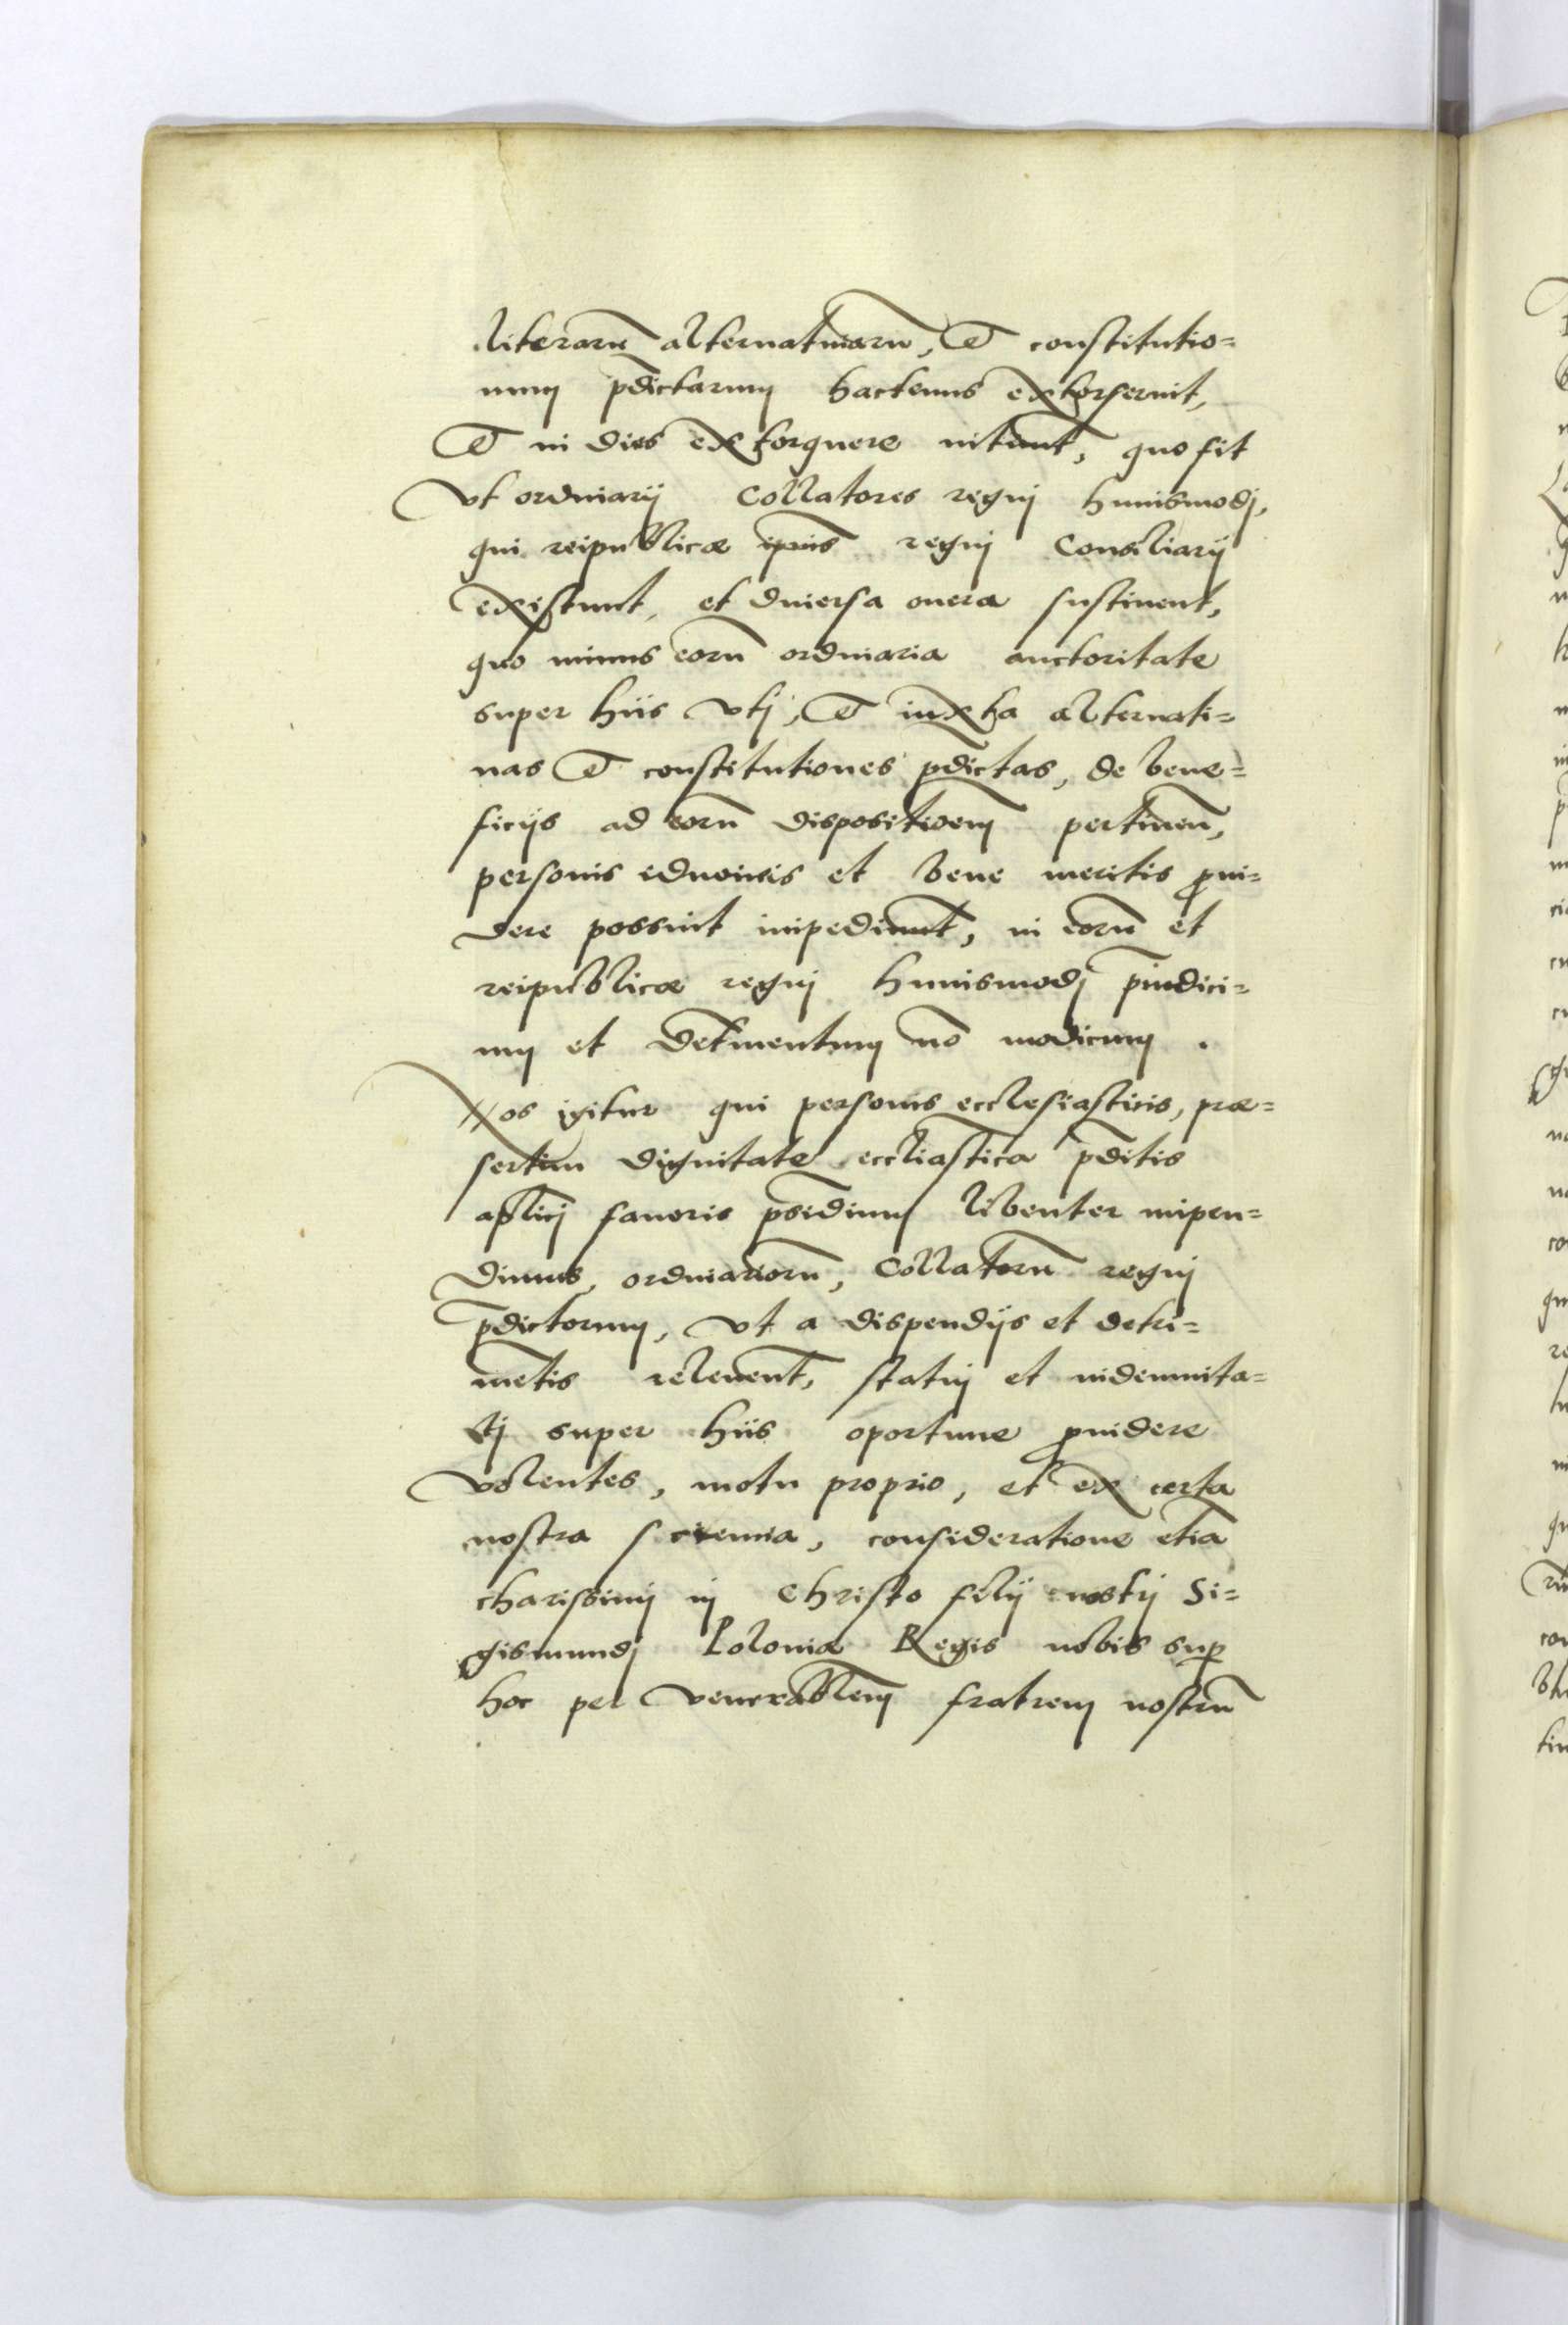 literarũ alternatiuarũ, Et constitutio=
num p̄dictarum hactenus extorserũt,
Et in dies extorquere nitunt̃, quo fit
vt ordinarij Collatores regnj huiusmodj,
qui reipublicæ ip̃ius regnj Consiliarij
existunt, et diuersa onera sustinent,
quo minus eorũ ordinaria auctoritate
super hiis vtj, Et iuxta alternati=
uas Et constitutiones p̄dictas, de bene=
ficijs ad eorũ dispositioem̃ pertineñ,
personis idoneis et bene meritis ꝓui=
dere possint impediunt̃, in eorũ et
reipublicæ regnj huiusmodj p̃iudici=
um et det̃mentum nõ modicum .
Nos igitur qui personis ecclesiasticis, præ=
sertim dignitate eccl̃iastica p̃ditis
ap̃licj fauoris p̃sidium libenter impen=
dimus, ordinariorũ, Collatorũ regnj
p̄dictorum, vt a dispendijs et detri=
mẽtis releuent̃, statuj et indemnita=
tj super hiis oportune ꝓuidere
volentes, motu proprio, et ex certa
nostra scientia, consideratione etiã
charissimj in Christo filij nostrj Si=
gismundj Poloniæ Regis nobis suꝑ
hoc per venerabilem̃ fratrem nostrũ